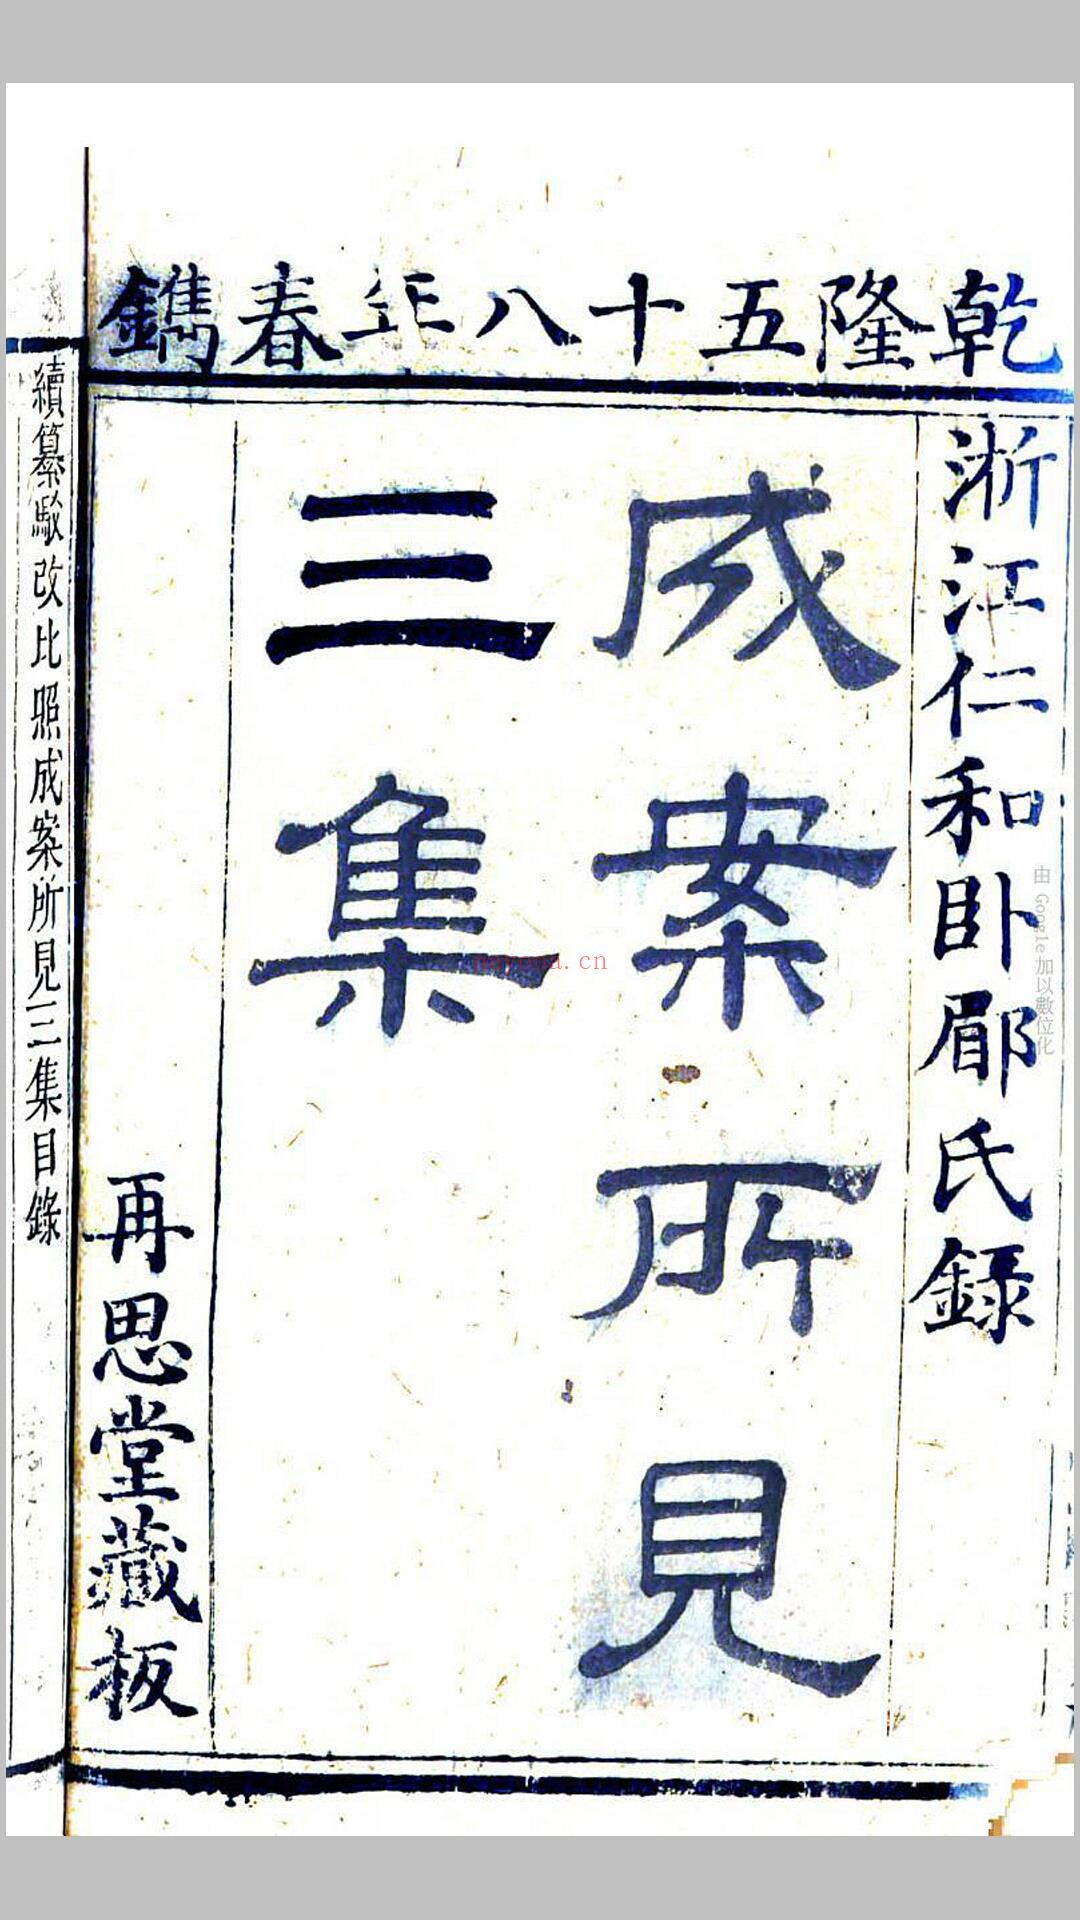 乾隆五十八年春鐫
浙江仁和卧郿氏録
成案所見
三集
再思堂藏板
續纂駁改比照成案所見三集目錄
由 Google 加以數位化